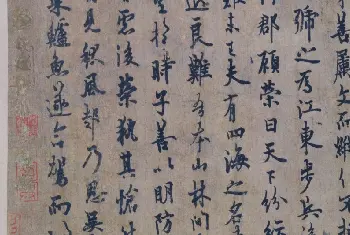 善屬文而縱任不
號之為江東步兵
郡顧榮曰天下紛紜
難未已夫有四海之名
退良難吾本山林間
於時子善以明防
慮後榮執其愴然
見秋風起乃思吳
菜鱸魚遂命駕而